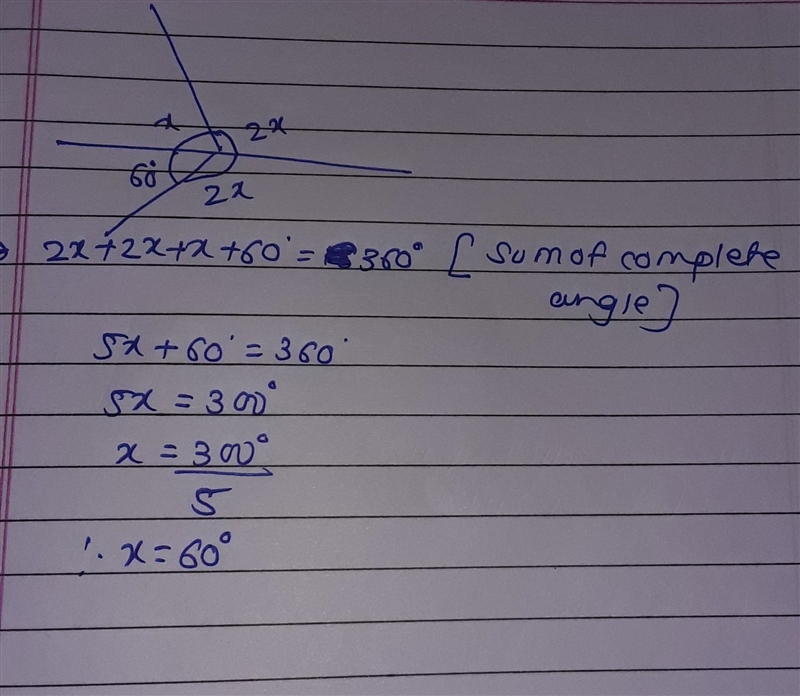 x 2x
60° 2x
2x+2x+x+60° = 360° [sum of complete
angle]
5x+60° = 360°
5x = 300°
x = 300°
5
∴ x = 60°